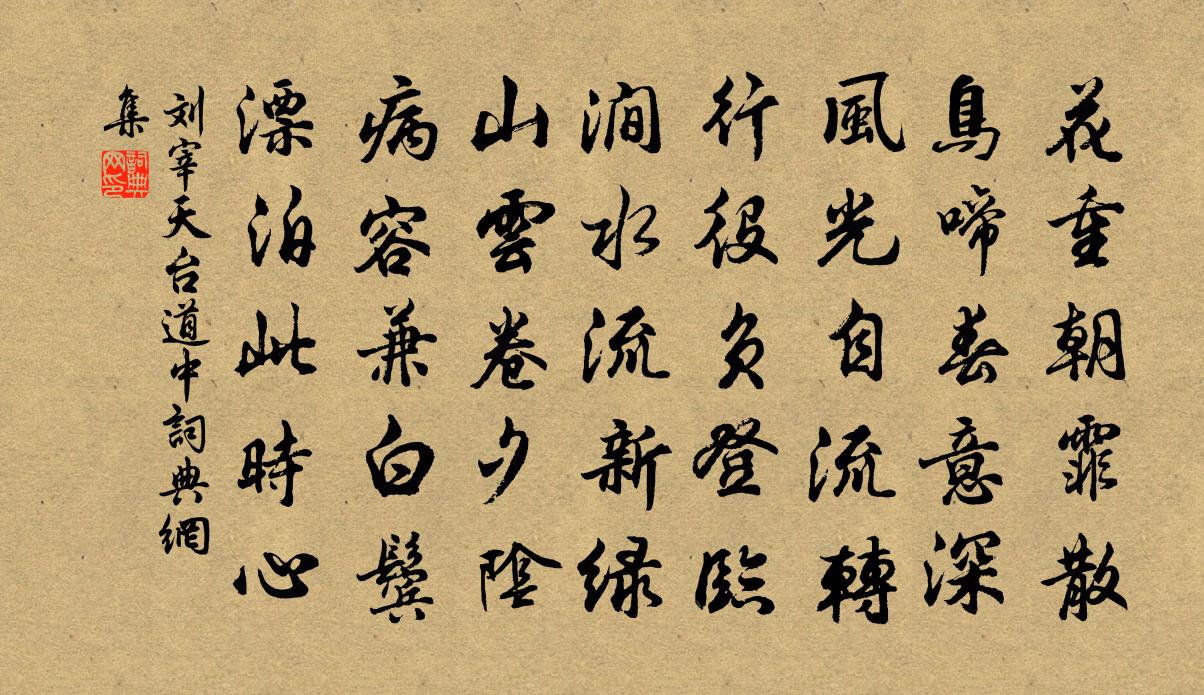 花重朝霏散
鳥啼春意深
風光自流轉
行役負登臨
澗水流新緑
山雲卷夕陰
病容兼白鬢
漂泊此時心
刘宰天台道中詞典網
集
詞典
网印